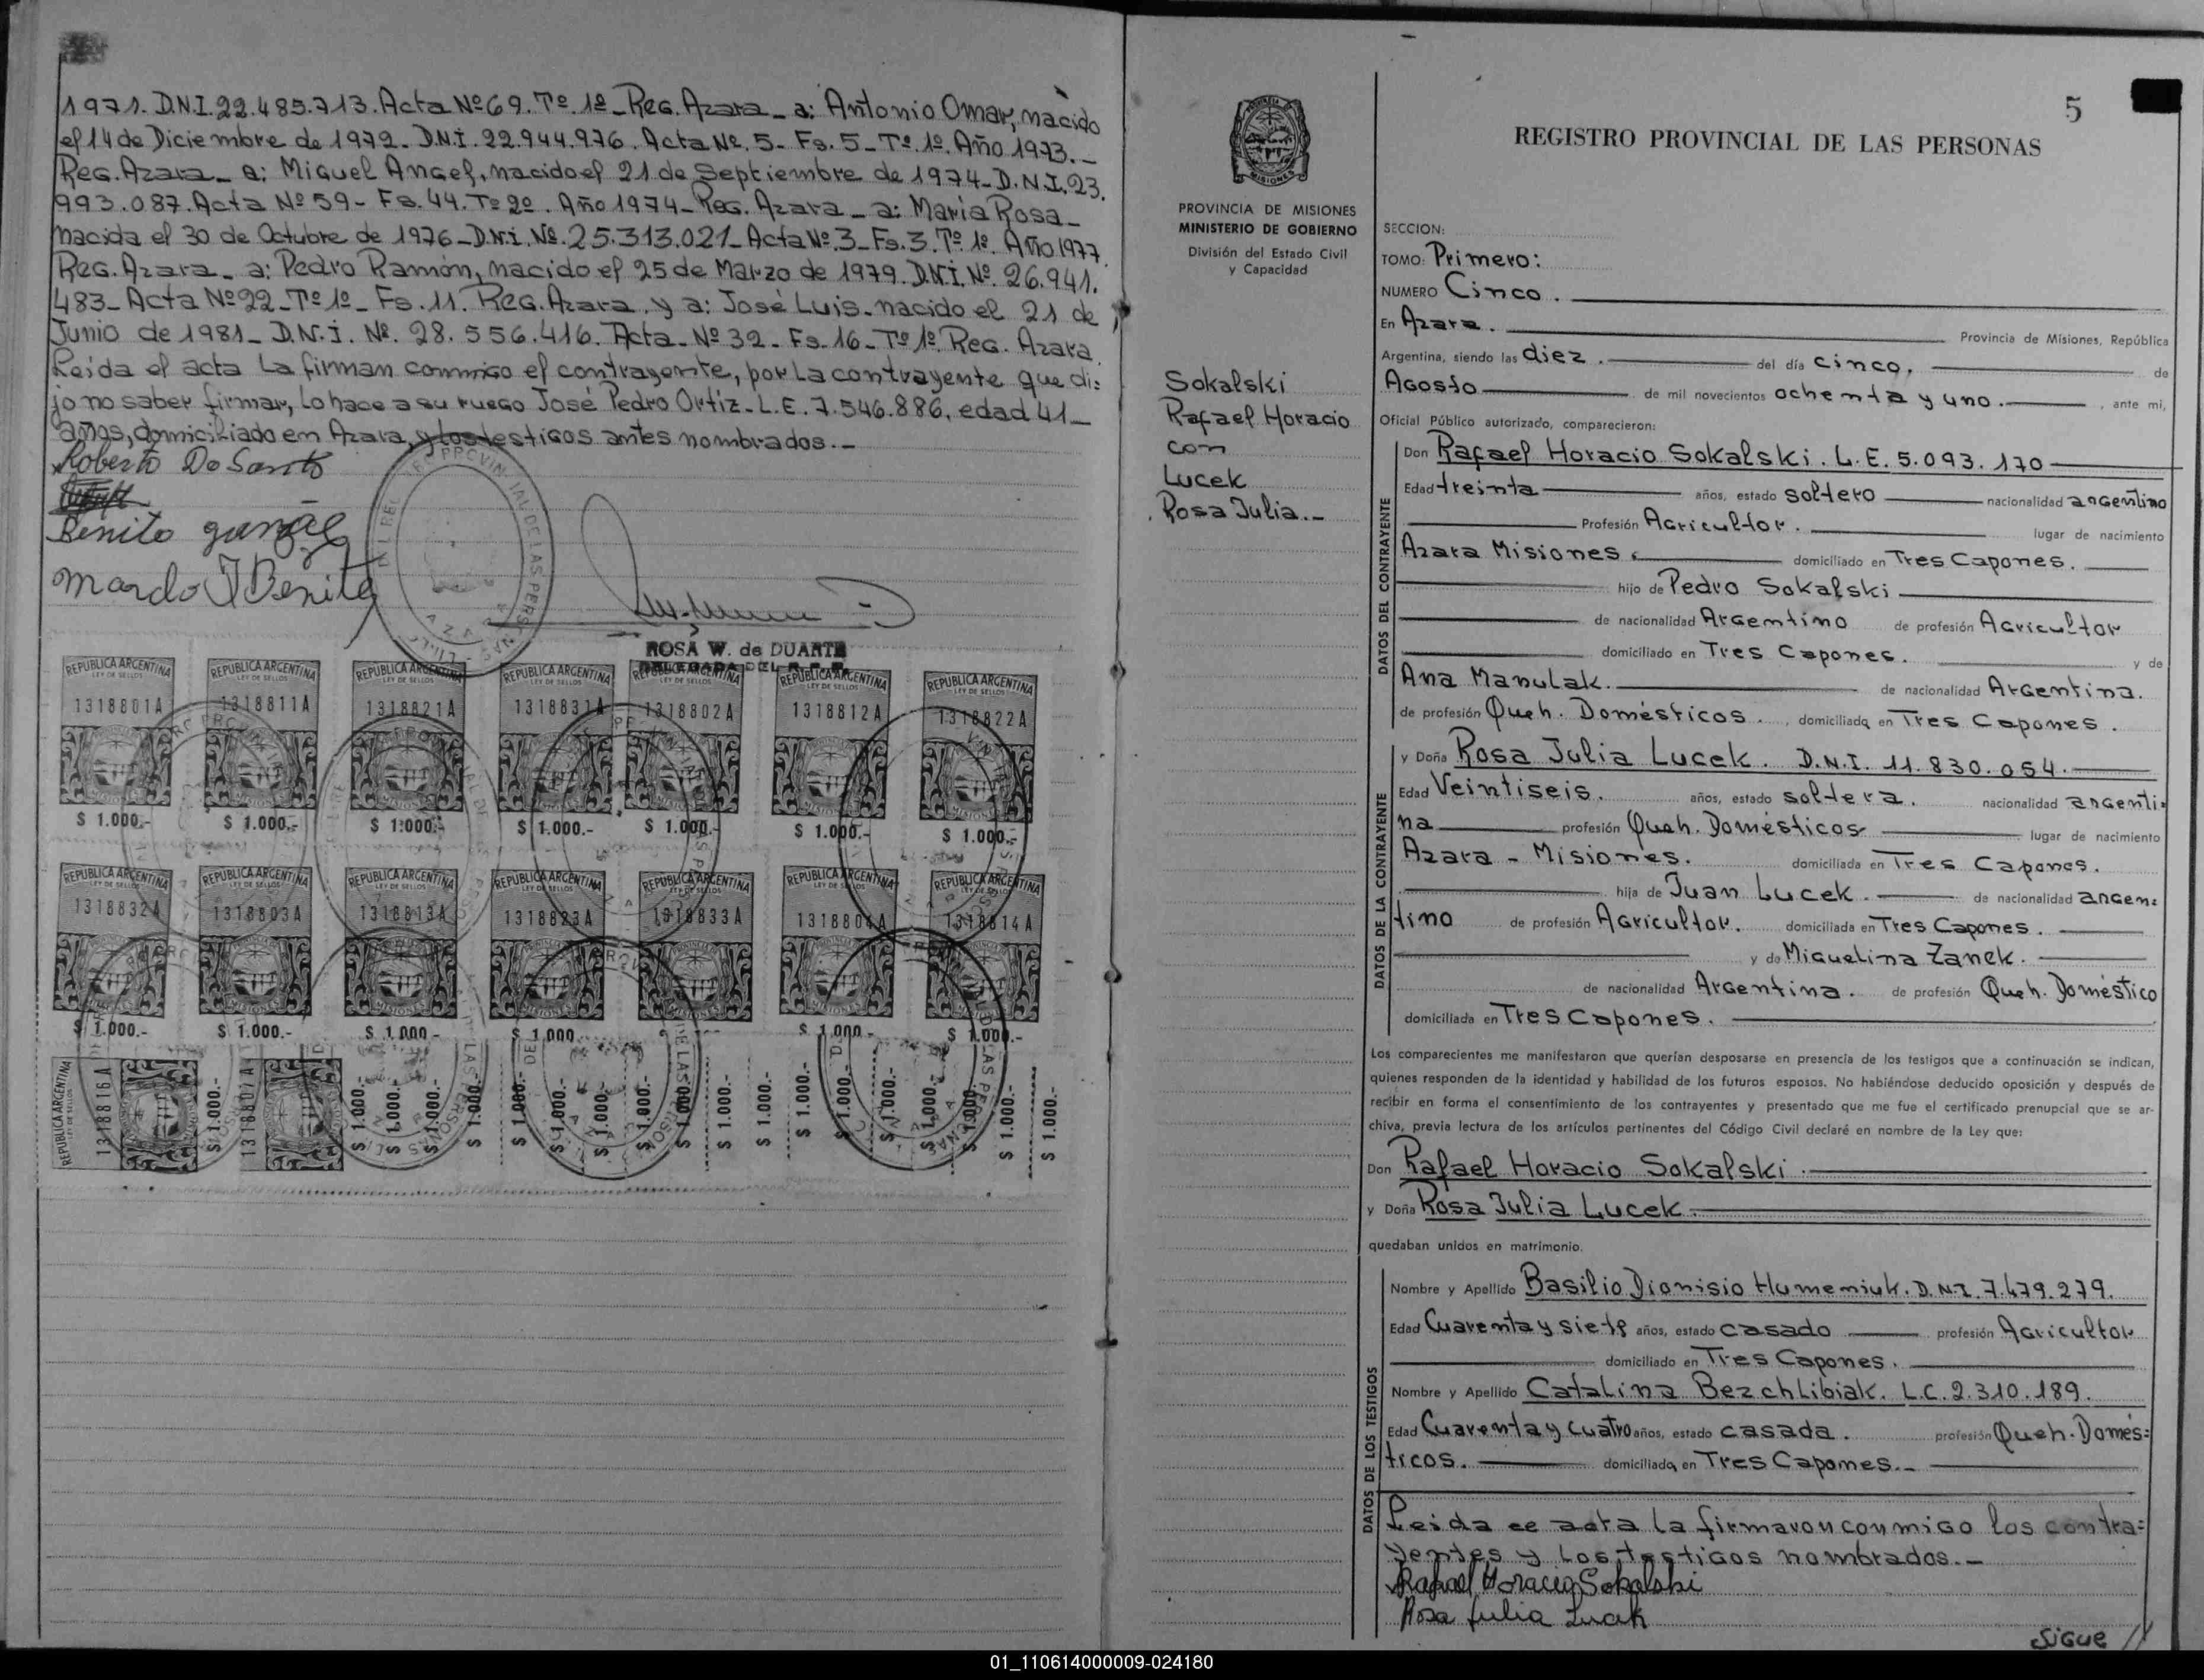 1971. D.N.I. 22.485.713. Acta Nº 69. Tº 1º - Reg. Azara - a: Antonio Omar, nacido
el 14 de Diciembre de 1972. D.N.I. 22.944.976. Acta Nº. 5 - Fs. 5 - Tº. 1º. Año 1973. -
Reg. Azara - a: Miguel Angel, nacido el 21 de Septiembre de 1974 - D.N.I. 23.
993.087. Acta Nº 59 - Fs. 44. Tº 2º. Año 1974 - Reg. Azara - a: María Rosa -
nacida el 30 de Octubre de 1976 - D.N.I. Nº. 25.313.021 - Acta Nº. 3 - Fs. 3. Tº. 1º. Año 1977.
Reg. Azara - a: Pedro Ramón, nacido el 25 de Marzo de 1979. D.N.I. Nº. 26.941.
483 - Acta Nº 22 - Tº 1º - Fs. 11. Reg. Azara. y a: José Luis. nacido el 21 de
Junio de 1981 - D.N.I. Nº. 28.556.416. Acta - Nº 32 - Fs. 16 - Tº 1º. Reg. Azara.
Leída el acta La firman conmigo el contrayente, por La contrayente que di=
jo no saber firmar, Lo hace a su ruego José Pedro Ortiz - L.E. 7.546.886, edad 41 -
años, domiciliado en Azara, y los testigos antes nombrados. -
Roberto Do Santo
Benito
ROSA W. de DUARTE
DELEGADA DEL R.P.P.
REPUBLICA ARGENTINA REPUBLICA ARGENTINA REPUBLICA ARGENTINA REPUBLICA ARGENTINA REPUBLICA ARGENTINA REPUBLICA ARGENTINA REPUBLICA ARGENTINA
LEY DE SELLOS LEY DE SELLOS LEY DE SELLOS LEY DE SELLOS LEY DE SELLOS LEY DE SELLOS LEY DE SELLOS
1318801A 1318811A 1318821A 1318831A 1318802A 1318812A 1318822A
$ 1.000.- $ 1.000.- $ 1.000.- $ 1.000.- $ 1.000.- $ 1.000.- $ 1.000.-
REPUBLICA ARGENTINA REPUBLICA ARGENTINA REPUBLICA ARGENTINA REPUBLICA ARGENTINA REPUBLICA ARGENTINA REPUBLICA ARGENTINA REPUBLICA ARGENTINA
LEY DE SELLOS LEY DE SELLOS LEY DE SELLOS LEY DE SELLOS LEY DE SELLOS LEY DE SELLOS
1318832A 1318803A 1318813A 1318823A 1318833A 1318804A 1318814A
$ 1.000.- $ 1.000.- $ 1.000.- $ 1.000.- $ 1.000.- $ 1.000.-
REPUBLICA ARGENTINA 1318816A $ 1.000.- 1318807A $ 1.000.- $ 1.000.- $ 1.000.- $ 1.000.- $ 1.000.- $ 1.000.- $ 1.000.- $ 1.000.- $ 1.000.- $ 1.000.- $ 1.000.- $ 1.000.- $ 1.000.- $ 1.000.- $ 1.000.- $ 1.000.- $ 1.000.- $ 1.000.-
MISIONES
PROVINCIA DE MISIONES
MINISTERIO DE GOBIERNO
División del Estado Civil
y Capacidad
Sokalski
Rafael Horacio
con
Lucek
Rosa Julia. -
5
REGISTRO PROVINCIAL DE LAS PERSONAS
SECCION:
TOMO: Primero:
NUMERO Cinco.
En Azara. Provincia de Misiones, República
Argentina, siendo las diez. del día cinco. de
Agosto de mil novecientos ochenta y uno. , ante mi,
Oficial Público autorizado, comparecieron:
DATOS DEL CONTRAYENTE
Don Rafael Horacio Sokalski. L.E. 5.093.170
Edad treinta años, estado soltero nacionalidad argentino
Profesión Agricultor. lugar de nacimiento
Azara Misiones. domiciliado en Tres Capones.
hijo de Pedro Sokalski
de nacionalidad Argentino de profesión Agricultor
domiciliado en Tres Capones. y de
Ana Manulak. de nacionalidad Argentina.
de profesión Queh. Domésticos. , domiciliada en Tres Capones.
DATOS DE LA CONTRAYENTE
y Doña Rosa Julia Lucek. D.N.I. 11.830.054.
Edad Veintiseis. años, estado soltera. nacionalidad argenti=
na profesión Queh. Domésticos lugar de nacimiento
Azara - Misiones. domiciliada en Tres Capones.
hija de Juan Lucek. de nacionalidad argen=
tino de profesión Agricultor. domiciliada en Tres Capones.
y de Miguelina Zanek.
de nacionalidad Argentina. de profesión Queh. Doméstico
domiciliada en Tres Capones.
Los comparecientes me manifestaron que querían desposarse en presencia de los testigos que a continuación se indican,
quienes responden de la identidad y habilidad de los futuros esposos. No habiéndose deducido oposición y después de
recibir en forma el consentimiento de los contrayentes y presentado que me fue el certificado prenupcial que se ar-
chiva, previa lectura de los artículos pertinentes del Código Civil declaré en nombre de la Ley que:
Don Rafael Horacio Sokalski.
y Doña Rosa Julia Lucek.
quedaban unidos en matrimonio.
DATOS DE LOS TESTIGOS
Nombre y Apellido Basilio Dionisio Humeniuk. D.N.I. 7.479.279.
Edad Cuarenta y siete años, estado casado profesión Agricultor
domiciliado en Tres Capones.
Nombre y Apellido Catalina Bezchlibiak. L.C. 2.310.189.
Edad Cuarenta y cuatro años, estado casada. profesión Queh. Domés=
ticos. domiciliada en Tres Capones. -
Leida el acta la firmaron conmigo los contra=
yentes y Los testigos nombrados. -
Rafael Horacio Sokalski
Rosa Julia Lucek
Sigue //
01_110614000009-024180